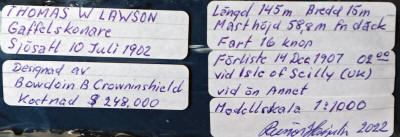 THOMAS W LAWSON
Gaffelskonare
Sjösatt 10 Juli 1902
Designad av
Bowdoin B Crowninshield
Kostnad $ 248,000
Längd 145m Bredd 15m
Masthöjd 58,8m fr däck
Fart 16 knop
Förliste 14 Dec 1907 02⁰⁰
vid Isle of Scilly (UK)
vid ön Annet
Modellskala 1:1000
2022